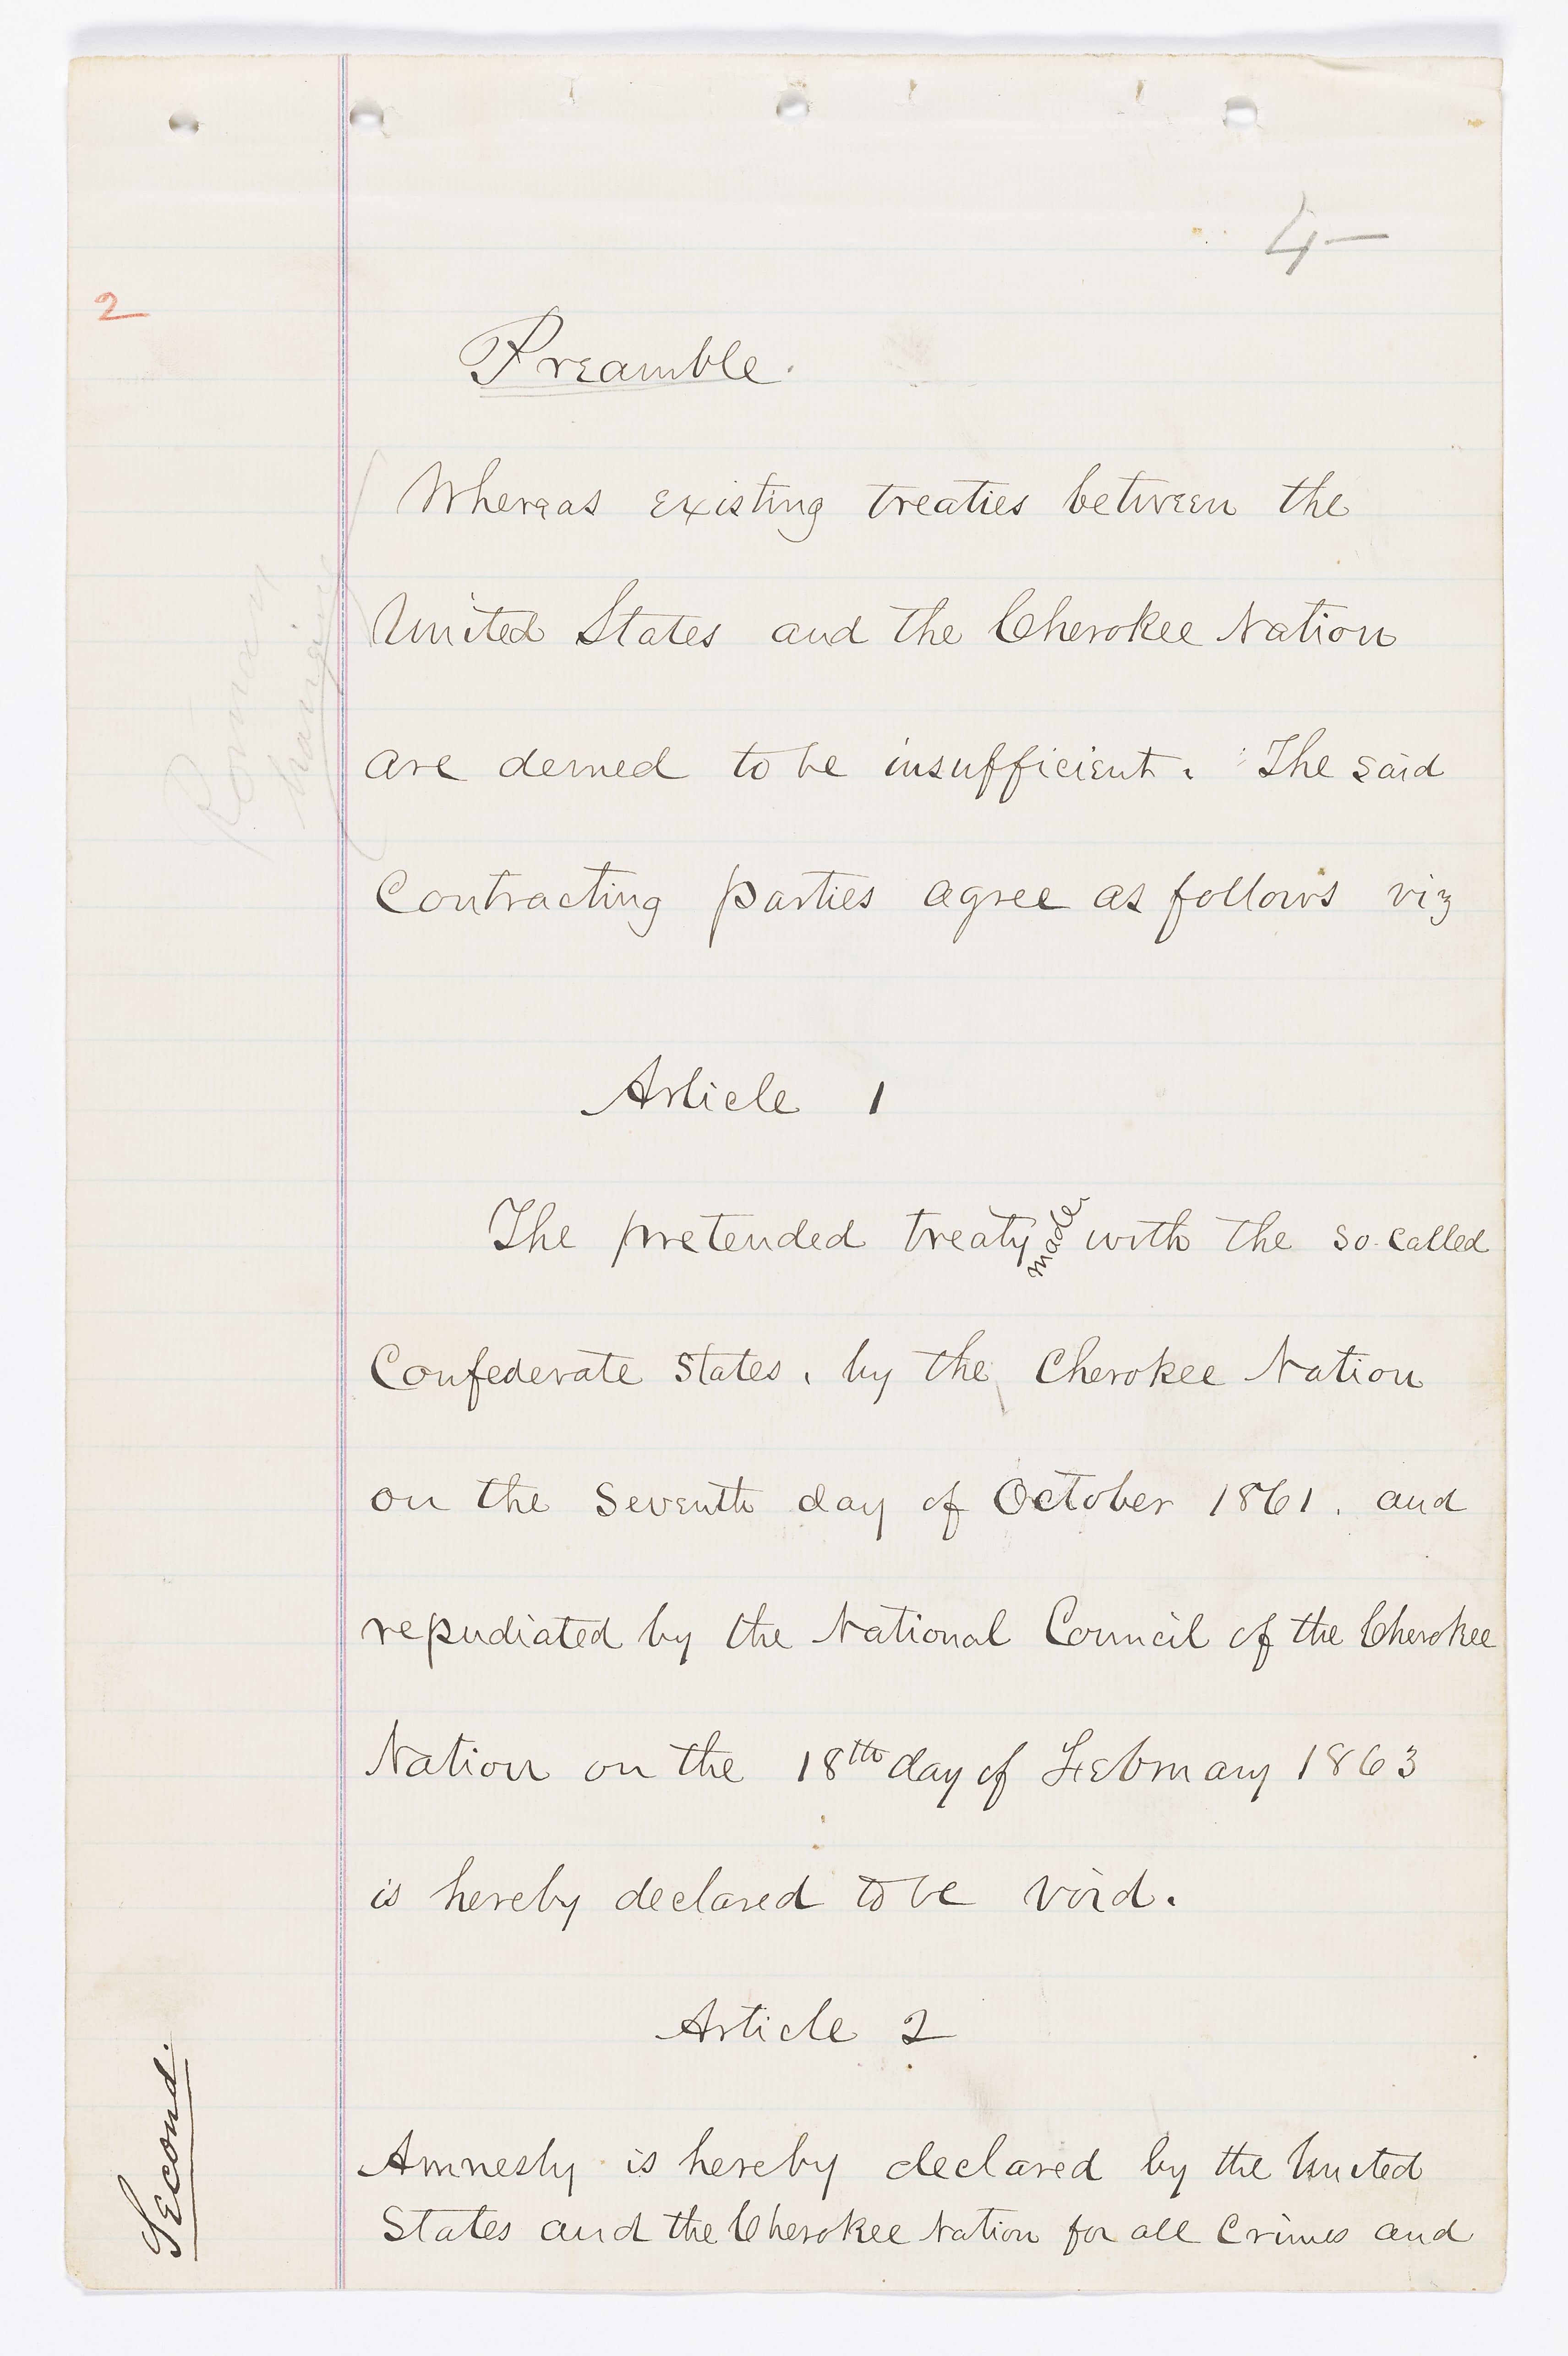 4
2
Preamble.
Whereas existing treaties between the
United States and the Cherokee Nation
are demed to be insufficient. The said
Contracting parties agree as follows viz
Roman
Article 1
The pretended treaty made with the so-called
Confederate States, by the Cherokee Nation
on the Seventh day of October 1861. and
repudiated by the National Council of the Cherokee
Nation on the 18th day of February 1863
is hereby declared to be void.
Article 2
Second.
Amnesty is hereby declared by the United
States and the Cherokee Nation for all Crimes and